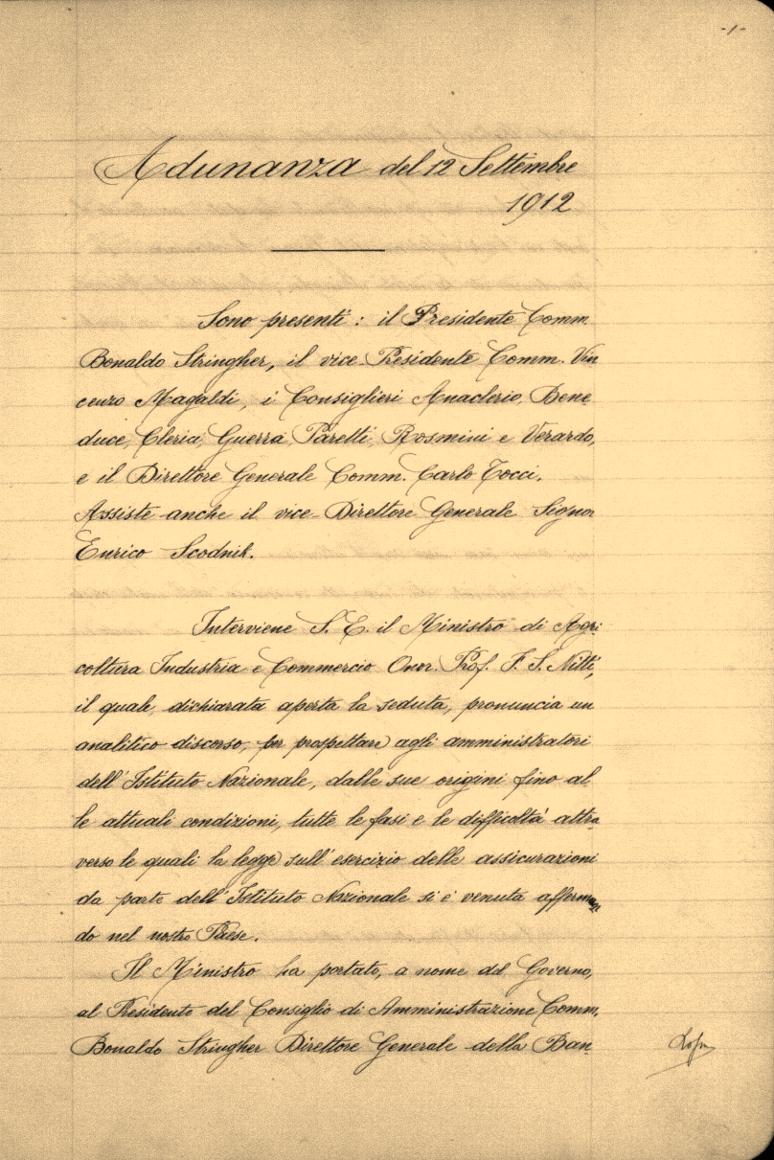 -1-
Adunanza del 12 Settembre
1912
Sono presenti: il Presidente Comm.
Bonaldo Stringher, il vice-Presidente Comm. Vin
cenzo Magaldi, i Consiglieri Anaclerio, Bene
duce, Clerici, Guerra, Paretti, Rosmini e Verardo,
e il Direttore Generale Comm. Carlo Tocci.
Assiste anche il vice-Direttore Generale Signor
Enrico Scodnik.
Interviene S. E. il Ministro di Agri
coltura Industria e Commercio Onor. Prof. F. S. Nitti,
il quale, dichiarata aperta la seduta, pronuncia un
analitico discorso, per prospettare agli amministratori
dell'Istituto Nazionale, dalle sue origini fino al
le attuali condizioni, tutte le fasi e le difficoltà attra
verso le quali la legge sull'esercizio delle assicurazioni
da parte dell'Istituto Nazionale si è venuta afferman
do nel nostro Paese.
Il Ministro ha portato, a nome del Governo,
al Presidente del Consiglio di Amministrazione Comm.
Bonaldo Stringher Direttore Generale della Ban